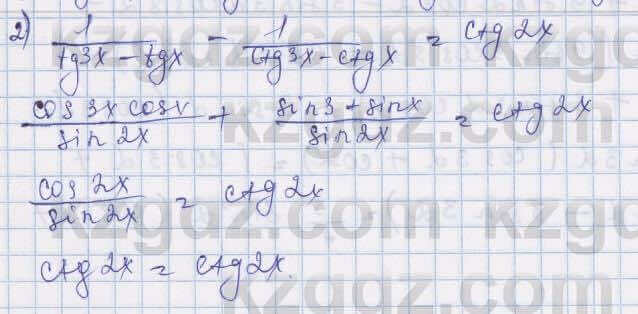 2) 1/(tg3x - tgx) - 1/(ctg3x - ctgx) = ctg 2x
cos 3x cosx / sin 2x + sin3 + sinx / sin2x = ctg2x
cos 2x / sin 2x = ctg 2x
ctg 2x = ctg 2x.
kzgdz.com
kzgdz.com
kzgdz.com